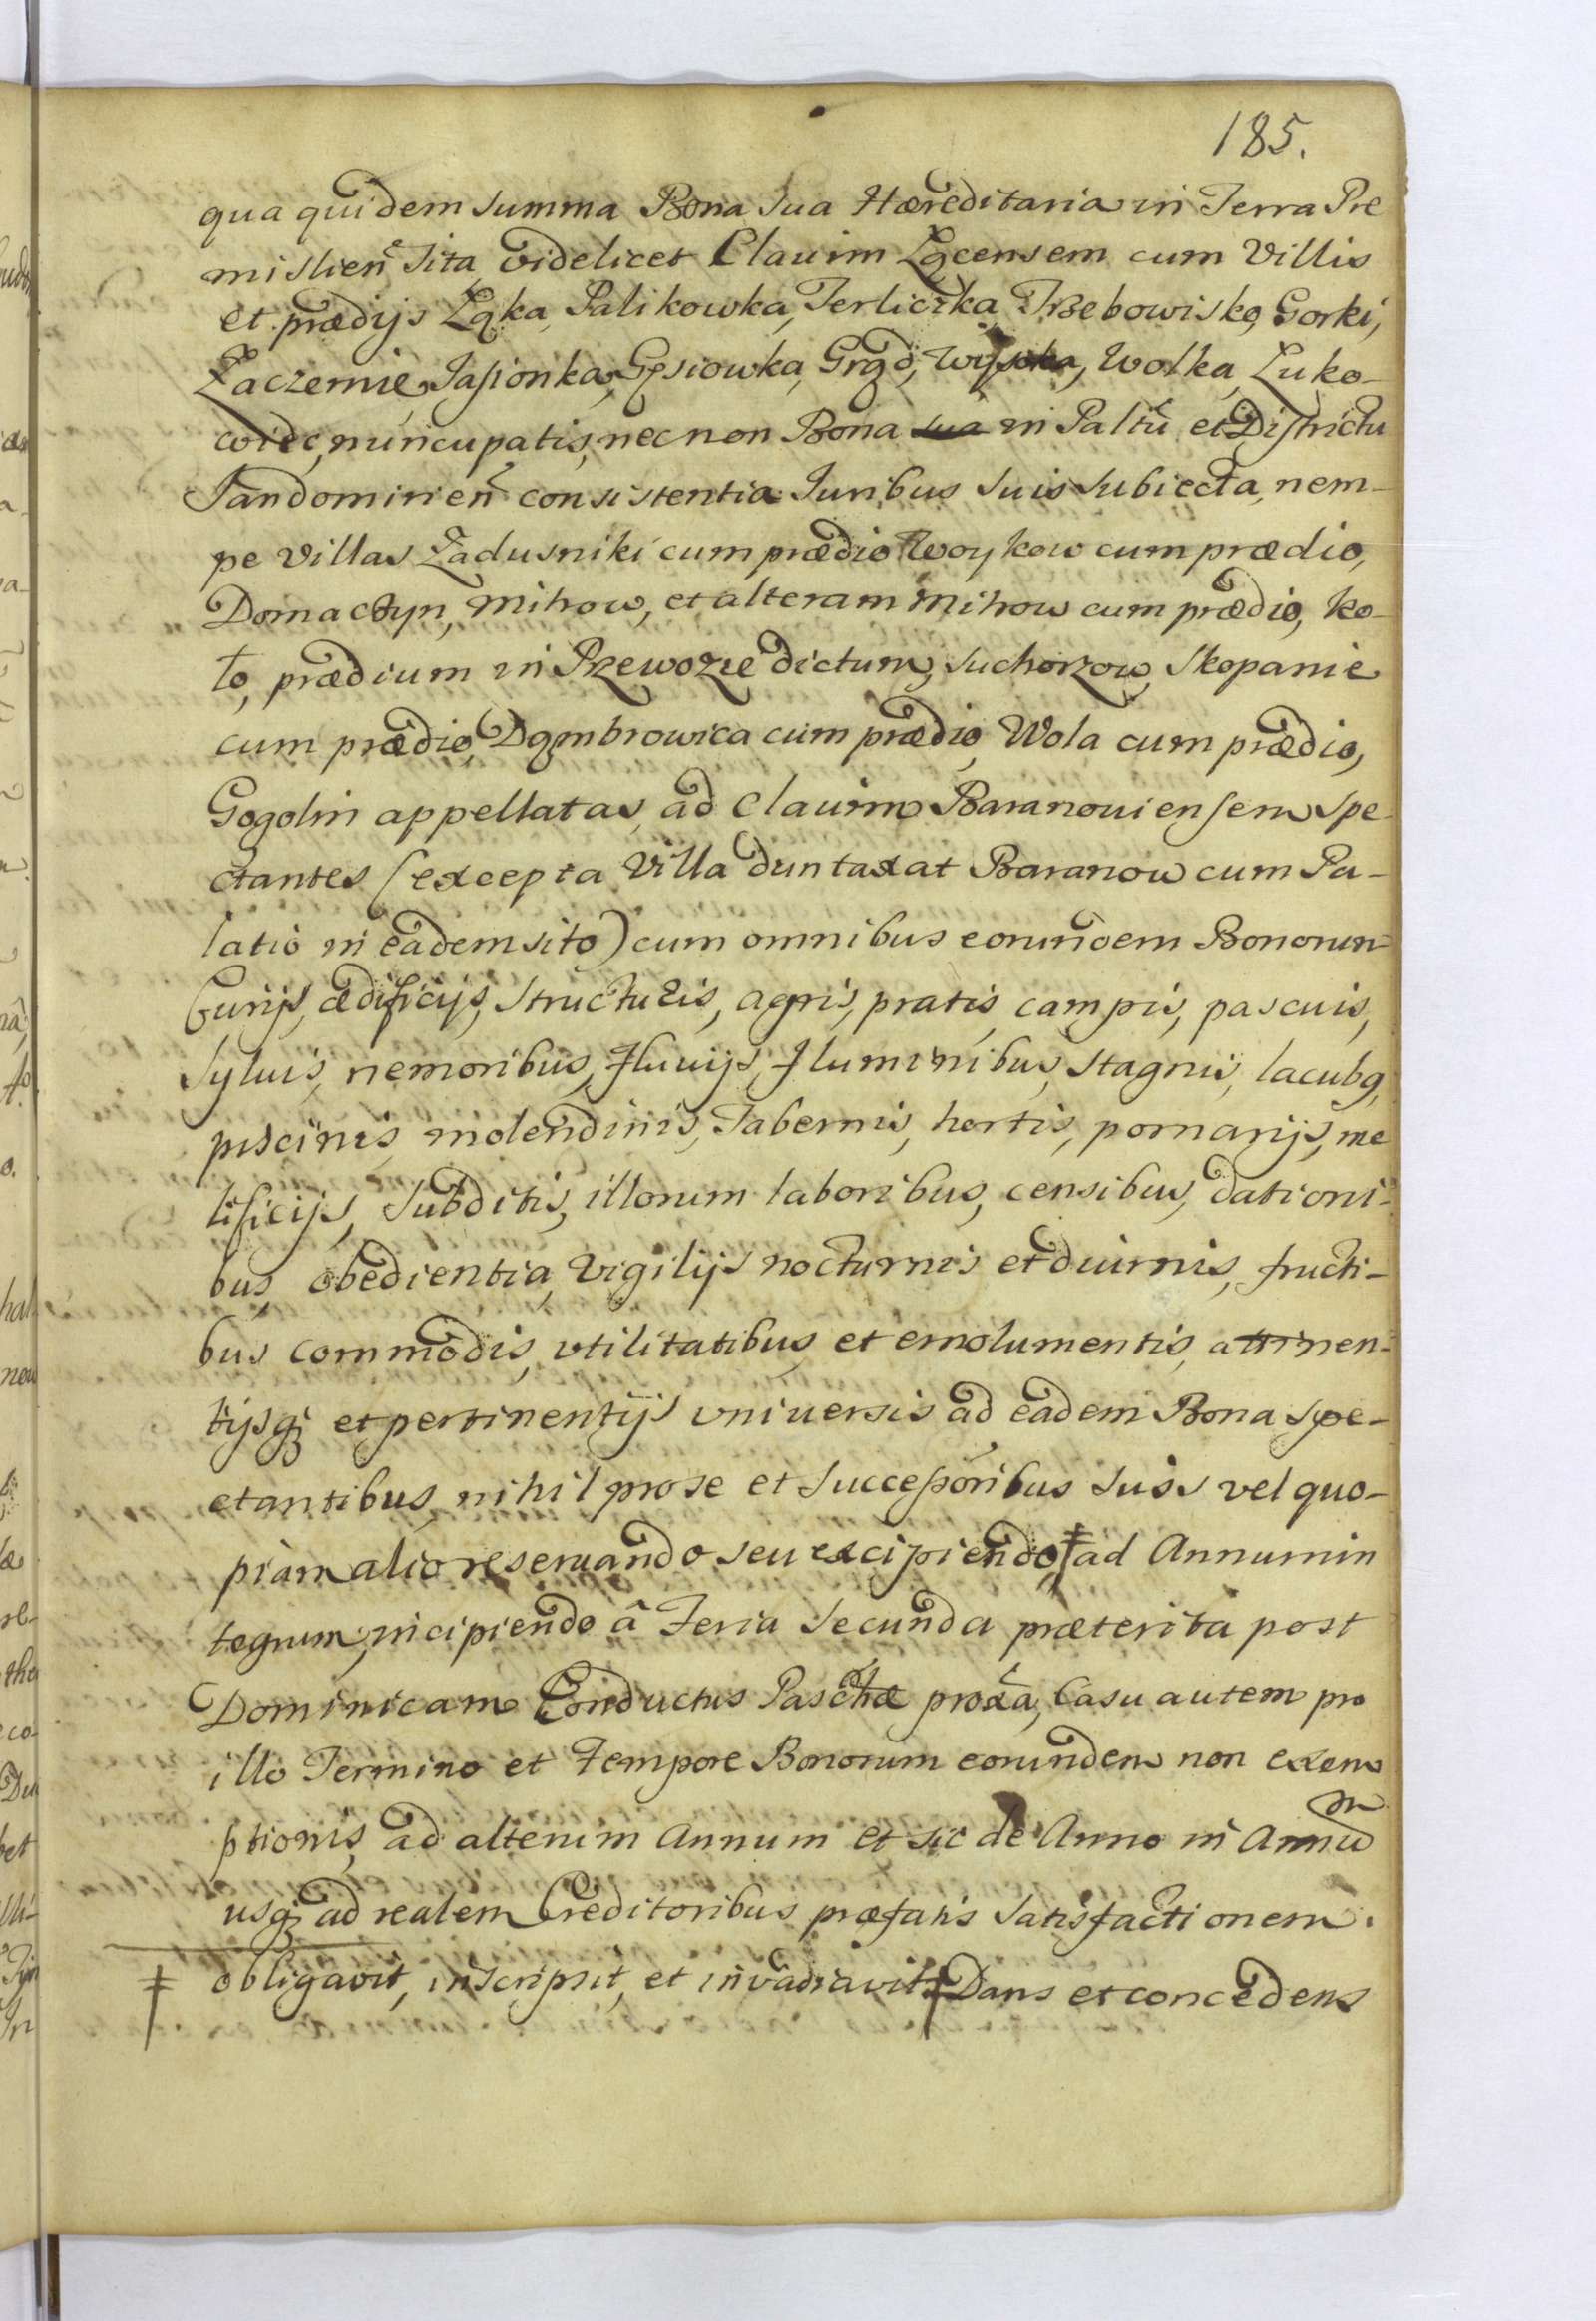 185.
qua quidem summa Bona sua Hæreditaria in Terra Pre
mislien̄ sita videlicet Clauim Łącensem cum Villis
et prædijs Łąka, Palikowka, Terliczka, Trzebowisko, Gorki,
Zaczernie, Jasionka, Gęsiowka, Grąd, Wysoka, Wolka, Luko-
wiec, nuncupatis, nec non Bona sua in Paltũ et Districtu
Sandomirien̄ consistentia Juribus suis subiecta, nem-
pe Villas Zadusniki cum prædio Woykow cum prædio,
Domactyn, Mihow, et alteram Mihow cum prædio, Ko-
ło, prædium in Przewozie dictum, Suchorzow, Skopanie
cum prædio, Dąmbrowica cum prædio, Wola cum prædio,
Gogolin appellatas, ad Clauim Baranouiensem spe-
ctantes (excepta Villa duntaxat Baranow cum Pa-
latio in eadem sito) cum omnibus eorundem Bonorum
Curijs, ædificijs, structuris, agris, pratis, campis, pascuis,
syluis, nemoribus, fluuijs, fluminibus, stagnis, lacubq,
piscinis, molendinis, Tabernis, hortis, pomarijs, me
lificijs, subditis, illorum laboribus, censibus, dationi-
bus, obedientia, vigilijs nocturnis et diurnis, fructi-
bus commodis, vtilitatibus, et emolumentis, attinen-
tijsq; et pertinentijs vniuersis ad eadem Bona spe-
ctantibus, nihil pro se et Successoribus suis vel quo-
piam alio reseruando seu excipiendo, ‡ ad Annum in
tegrum, incipiendo â Feria Secunda præterita post
Dominicam Conductus Paschæ proxã, Casu autem pro
illo Termino et tempore Bonorum eorundem non exem
ptionis, ad alterum Annum et sic de Anno in Annũ
usq; ad realem Creditoribus præfatis satisfactionem.
‡ obligavit, inscripsit, et invadiavit ‡ Dans et concedens